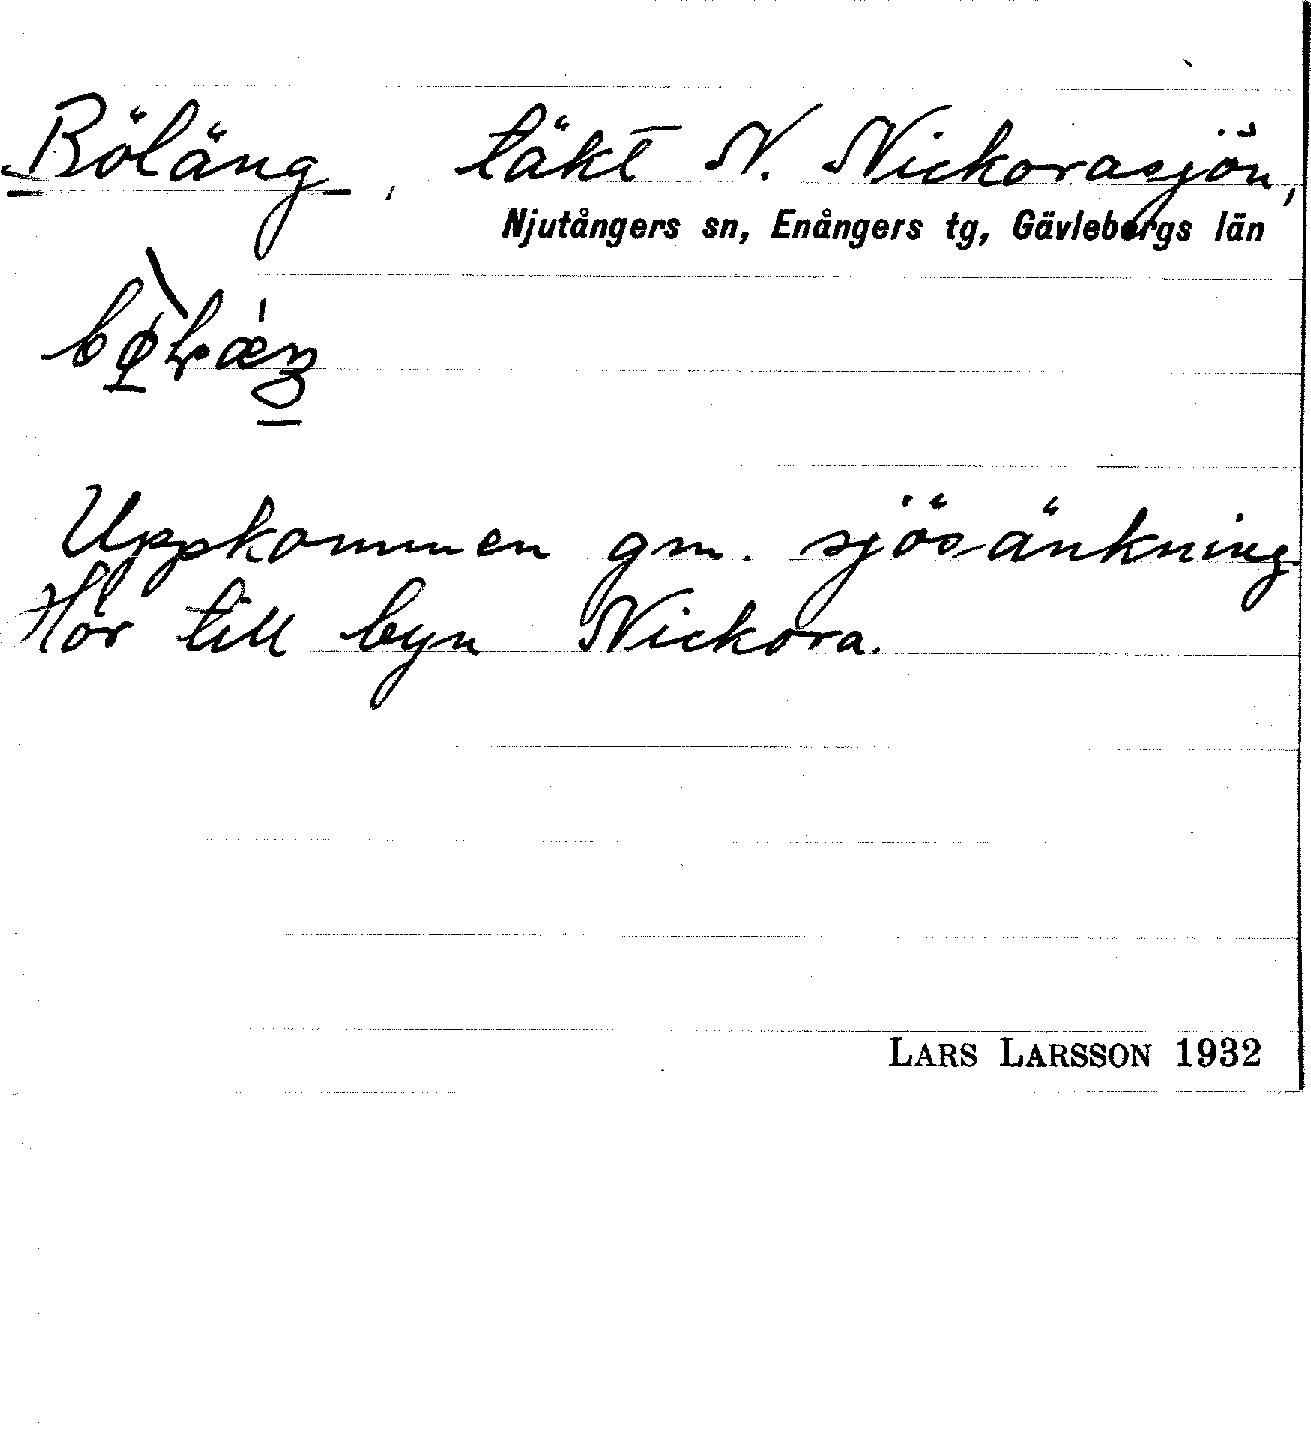 Böläng, täkt N. Nickorasjön,
Njutångers sn, Enångers tg, Gävleborgs län
Uppkommen gm. sjösänkning.
Hör till byn Nickora.
LARS LARSSON 1932